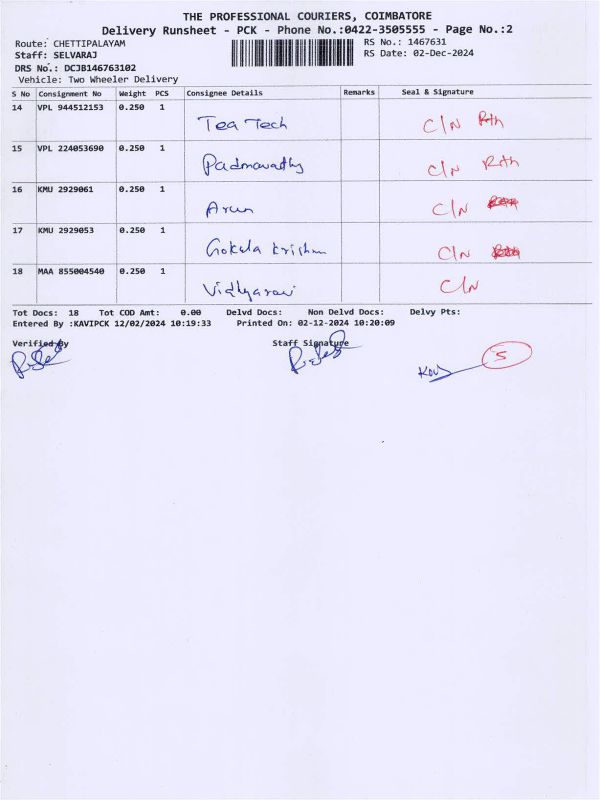 THE PROFESSIONAL COURIERS, COIMBATORE
Delivery Runsheet - PCK - Phone No.:0422-3505555 - Page No.:2
Route: CHETTIPALAYAM
RS No.: 1467631
Staff: SELVARAJ
RS Date: 02-Dec-2024
DRS No.: DCJB146763102
Vehicle: Two Wheeler Delivery
S No Consignment No Weight PCS Consignee Details Remarks Seal & Signature
14 VPL 944512153 0.250 1
Tea Tech C/N
15 VPL 224053690 0.250 1
Padmavathy C/N
16 KMU 2929061 0.250 1
Arun C/N
17 KMU 2929053 0.250 1
Gokula Krishnan C/N
18 MAA 855004540 0.250 1
Vidhyaravi C/N
Tot Docs: 18 Tot COD Amt: 0.00 Delvd Docs: Non Delvd Docs: Delvy Pts:
Entered By :KAVIPCK 12/02/2024 10:19:33 Printed On: 02-12-2024 10:20:09
Verified By Staff Signature
5